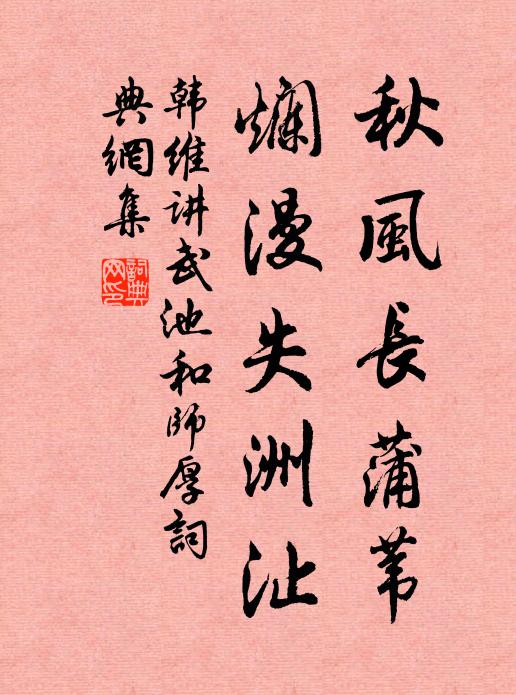 秋風長蒲苇
爛漫失洲沚
韩维讲武池和师厚詞
典網集
詞典
网印